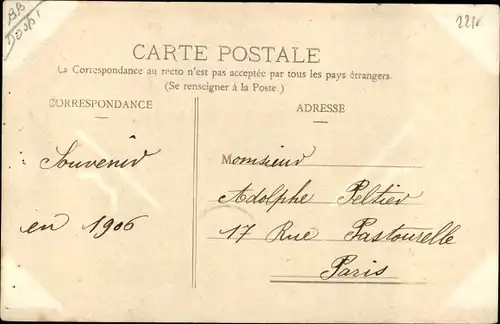 CARTE POSTALE
La Correspondance au recto n'est pas acceptée par tous les pays étrangers
(Se renseigner à la Poste.)
CORRESPONDANCE
ADRESSE
Souvenir
en 1906
Monsieur
Adolphe Peltier
17 Rue Pastourelle
Paris